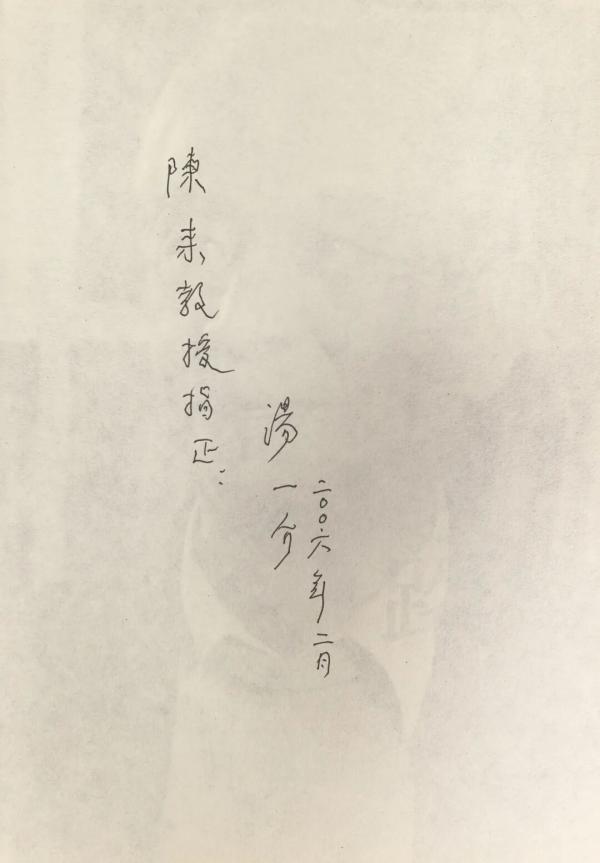 陳来教授指正：
湯一介
二〇〇六年二月